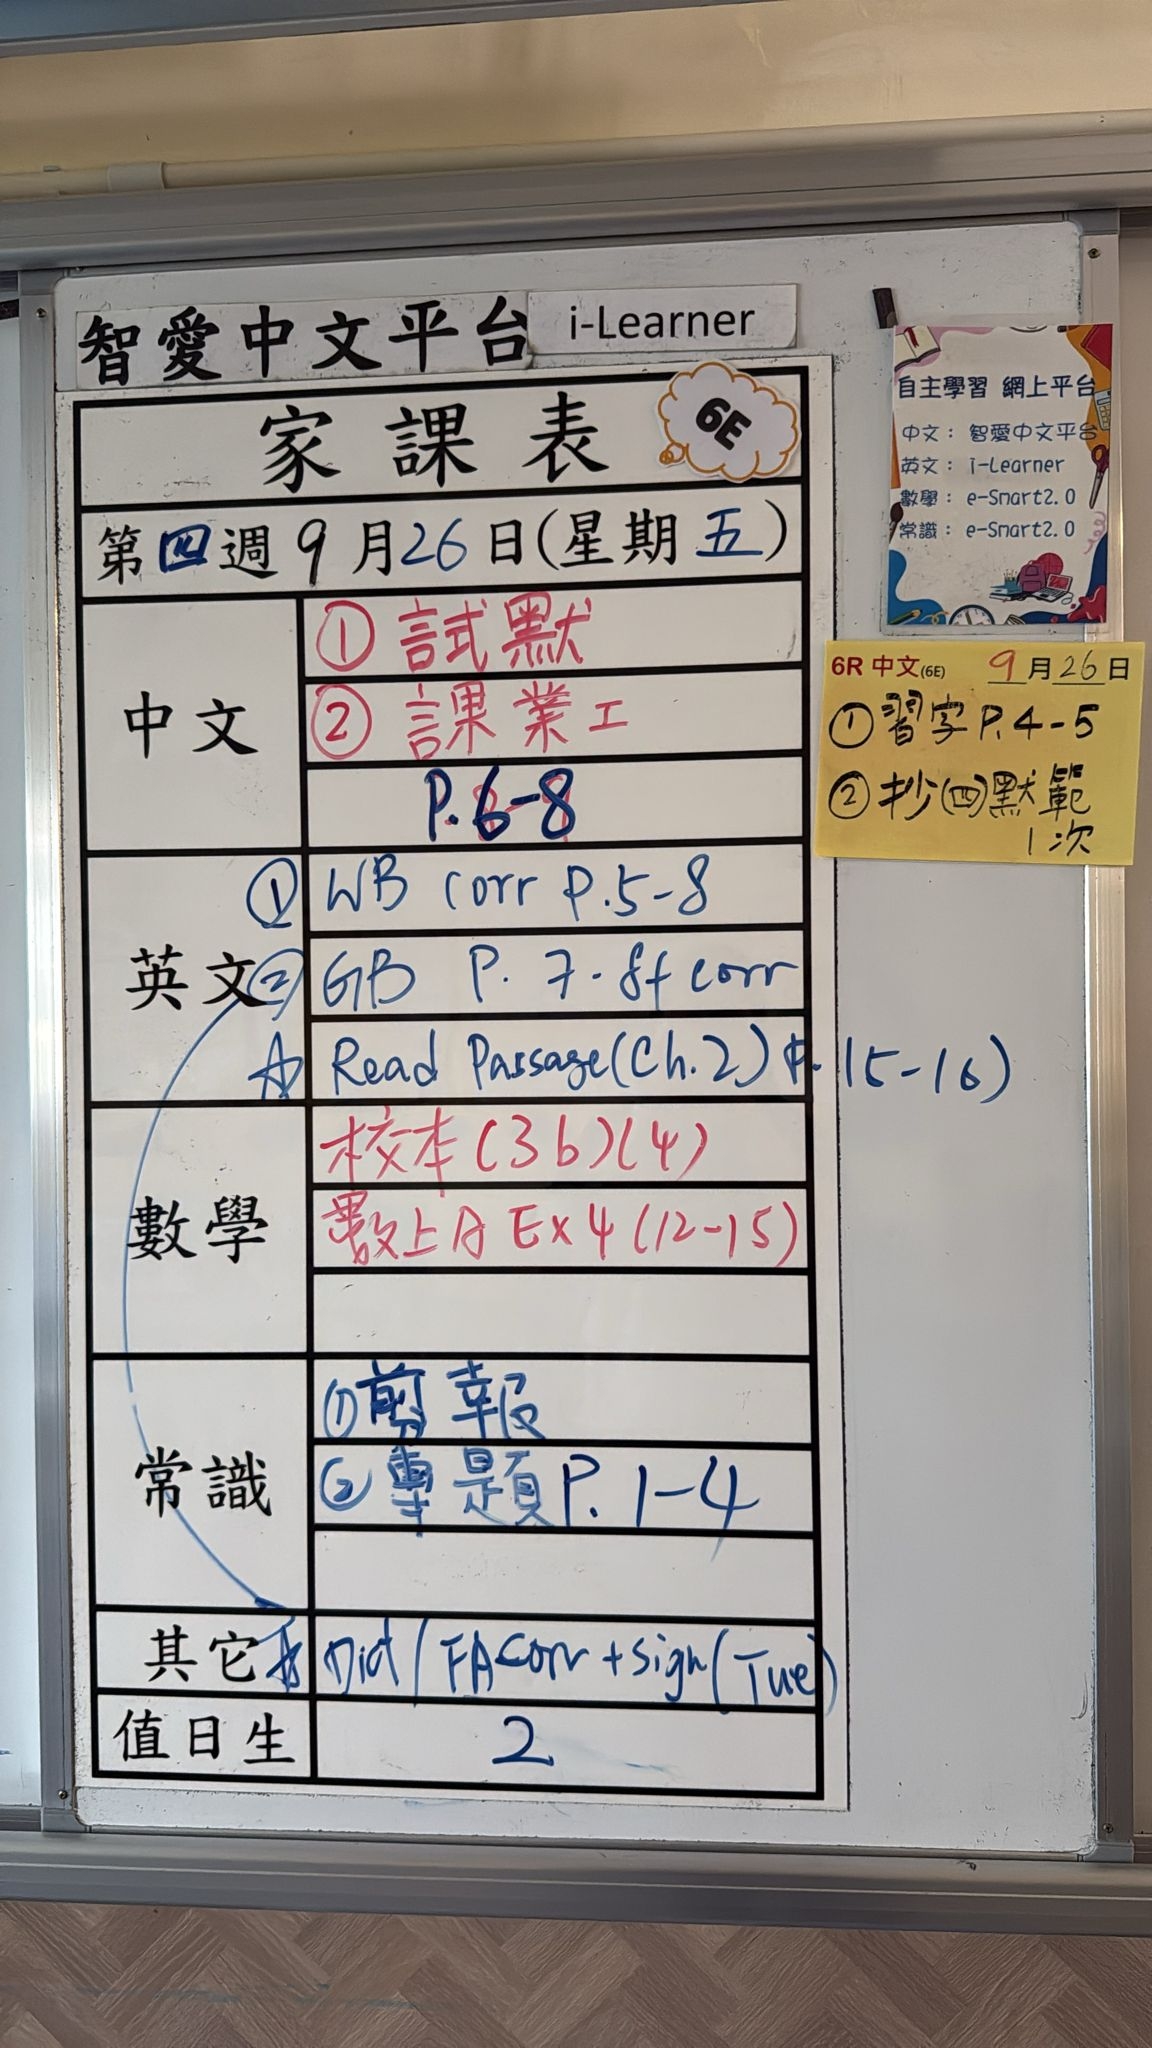 智愛中文平台 i-Learner
家課表 6E
第四週9月26日(星期五)
中文
① 試默
② 課業工
P.6-8
英文
① WB corr P.5-8
② GB P.7-8f corr
☆ Read Passage(Ch.2) P.15-16)
數學
校本(3b)(4)
數上A Ex4(12-15)
常識
①剪報
②專題P.1-4
其它
☆ Dict/FA corr + sign(Tue)
值日生
2
自主學習 網上平台
中文：智愛中文平台
英文：i-Learner
數學：e-Smart2.0
常識：e-Smart2.0
6R 中文(6E) 9月26日
①習字P.4-5
②抄(四)默範
1次